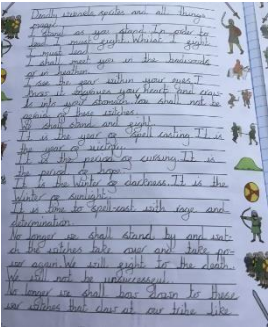 Deadly venerable spirites and all things
magic!
I stand as you stand in order to
lead our fight. Whilst I fight
I must lead.
I shall meet you in the
or in heathen.
I see the fear within your eyes. I
know it your heart and
is into your stomach. You shall not be
of these witches.
We shall stand and fight.
It is the year of spell casting. It is
the year of victory.
It is the period of cursing. It is
the period of hope.
It is the winter of darkness. It is the
winter of sunlight.
It is time to spell-cast with rage and
determination.
No longer we shall stand by and wat-
ch the witches take over and take po-
wer again. We will fight to the death.
We will not be unsuccessful.
No longer we shall bow down to these
witches that claw at our tribe like